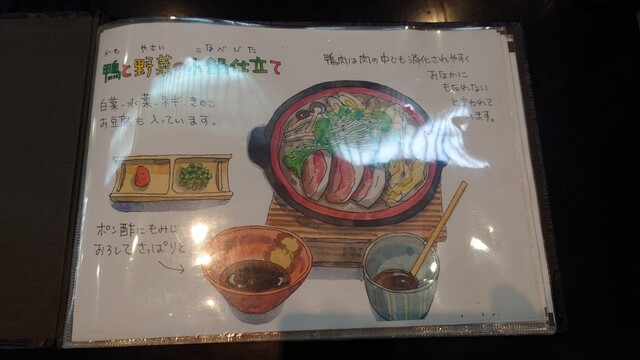 かも やさい こなべじた
鴨と野菜の小鍋仕立て
白菜、水菜、ネギ、きのこ
お豆腐も入っています。
鴨肉は肉の中でも消化されやすく
おなかに
もたれない
と言われて
います。
ポン酢にもみじ
おろしでさっぱりと